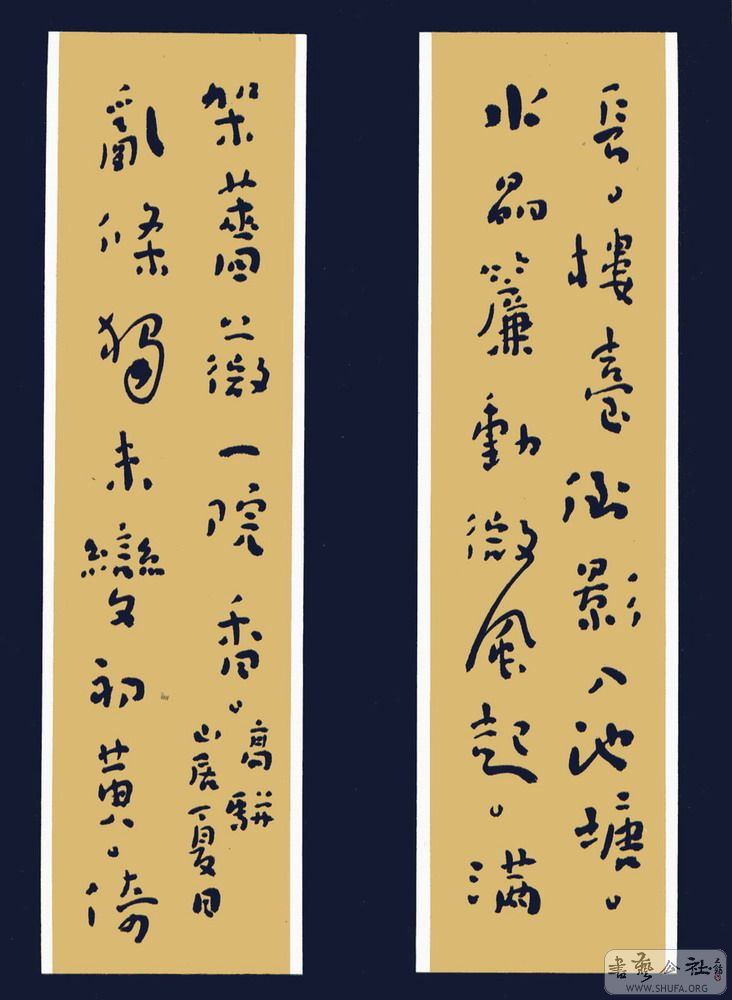 長。樓臺倒影入池塘。
水晶簾動微風起。滿
架薔薇一院香。
高駢
山居夏日
亂條獨未變初黃。倚
書藝公社
WWW.SHUFA.ORG